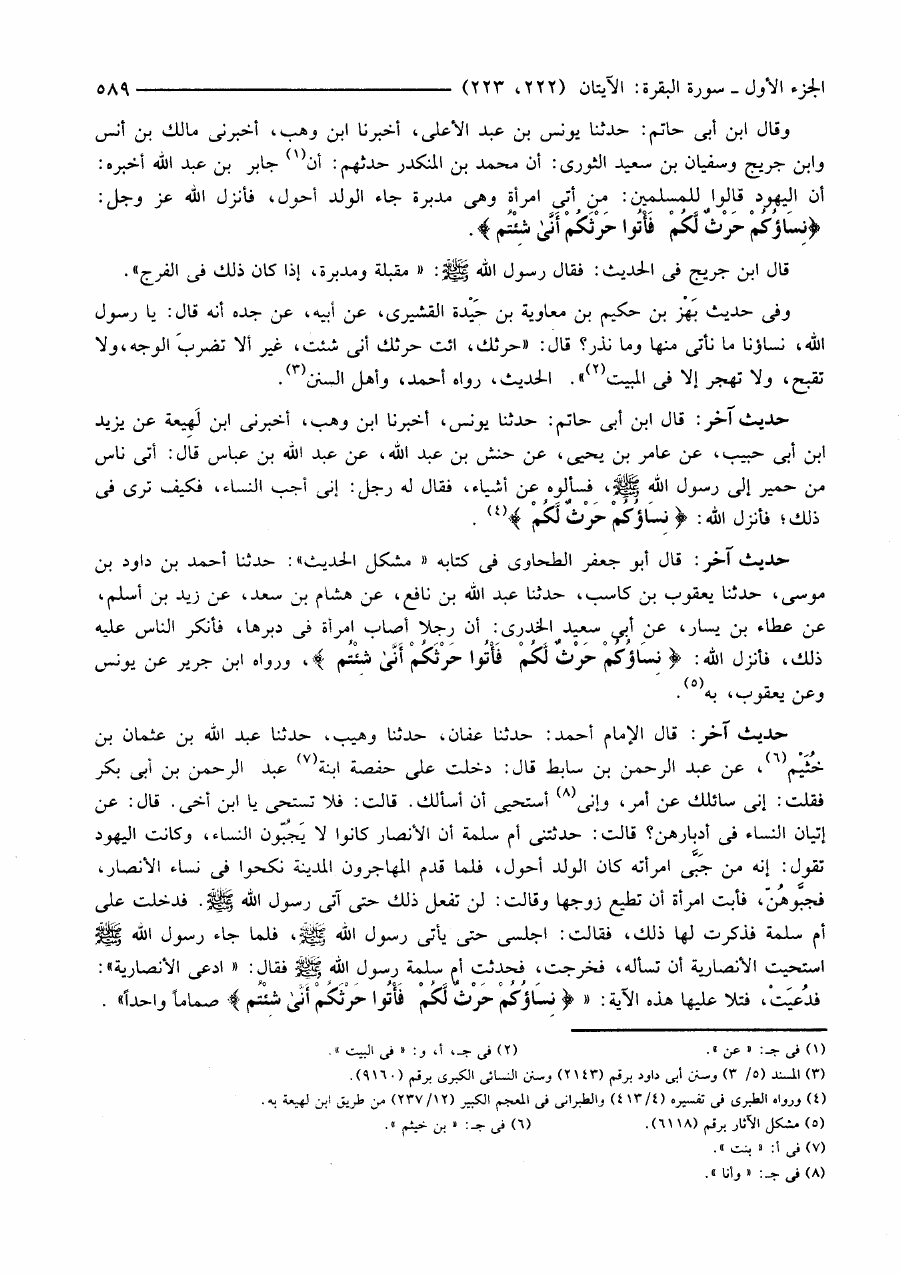 الجزء الأول ـ سورة البقرة: الآيتان (٢٢٢، ٢٢٣) ٥٨٩
وقال ابن أبى حاتم: حدثنا يونس بن عبد الأعلى، أخبرنا ابن وهب، أخبرنى مالك بن أنس
وابن جريج وسفيان بن سعيد الثورى: أن محمد بن المنكدر حدثهم: أن(١) جابر بن عبد الله أخبره:
أن اليهود قالوا للمسلمين: من أتى امرأة وهى مدبرة جاء الولد أحول، فأنزل الله عز وجل:
﴿نِسَاؤُكُمْ حَرْثٌ لَّكُمْ فَأْتُوا حَرْثَكُمْ أَنَّىٰ شِئْتُم﴾.
قال ابن جريج فى الحديث: فقال رسول الله ﷺ: « مقبلة ومدبرة، إذا كان ذلك فى الفرج».
وفى حديث بَهْز بن حكيم بن معاوية بن حَيْدة القشيرى، عن أبيه، عن جده أنه قال: يا رسول
الله، نساؤنا ما نأتى منها وما نذر؟ قال: «حرثك، ائت حرثك أنى شئت، غير ألا تضربَ الوجه،ولا
تقبح، ولا تهجر إلا فى المبيت(٢)». الحديث، رواه أحمد، وأهل السنن(٣).
حديث آخر: قال ابن أبى حاتم: حدثنا يونس، أخبرنا ابن وهب، أخبرنى ابن لَهِيعة عن يزيد
ابن أبى حبيب، عن عامر بن يحيى، عن حنش بن عبد الله، عن عبد الله بن عباس قال: أتى ناس
من حمير إلى رسول الله ﷺ، فسألوه عن أشياء، فقال له رجل: إنى أجب النساء، فكيف ترى فى
ذلك؛ فأنزل الله: ﴿ نِسَاؤُكُمْ حَرْثٌ لَّكُمْ ﴾(٤) .
حديث آخر: قال أبو جعفر الطحاوى فى كتابه « مشكل الحديث»: حدثنا أحمد بن داود بن
موسى، حدثنا يعقوب بن كاسب، حدثنا عبد الله بن نافع، عن هشام بن سعد، عن زيد بن أسلم،
عن عطاء بن يسار، عن أبى سعيد الخدرى: أن رجلا أصاب امرأة فى دبرها، فأنكر الناس عليه
ذلك، فأنزل الله: ﴿ نِسَاؤُكُمْ حَرْثٌ لَّكُمْ فَأْتُوا حَرْثَكُمْ أَنَّىٰ شِئْتُم ﴾، ورواه ابن جرير عن يونس
وعن يعقوب، به(٥).
حديث آخر: قال الإمام أحمد: حدثنا عفان، حدثنا وهيب، حدثنا عبد الله بن عثمان بن
خُثَيْم(٦)، عن عبد الرحمن بن سابط قال: دخلت على حفصة ابنة(٧) عبد الرحمن بن أبى بكر
فقلت: إنى سائلك عن أمر، وإنى(٨) أستحيى أن أسألك. قالت: فلا تستحى يا ابن أخى. قال: عن
إتيان النساء فى أدبارهن؟ قالت: حدثتنى أم سلمة أن الأنصار كانوا لا يَجُبّون النساء، وكانت اليهود
تقول: إنه من جَبَّى امرأته كان الولد أحول، فلما قدم المهاجرون المدينة نكحوا فى نساء الأنصار،
فجبَّوهُنّ، فأبت امرأة أن تطيع زوجها وقالت: لن تفعل ذلك حتى آتى رسول الله ﷺ. فدخلت على
أم سلمة فذكرت لها ذلك، فقالت: اجلسى حتى يأتى رسول الله ﷺ، فلما جاء رسول الله ﷺ
استحيت الأنصارية أن تسأله، فخرجت، فحدثت أم سلمة رسول الله ﷺ فقال: « ادعى الأنصارية»:
فدُعيَتْ، فتلا عليها هذه الآية: « ﴿ نِسَاؤُكُمْ حَرْثٌ لَّكُمْ فَأْتُوا حَرْثَكُمْ أَنَّىٰ شِئْتُم ﴾ صماماً واحداً» .
(١) فى جـ: « عن ». (٢) فى جـ، أ، و: « فى البيت ».
(٣) المسند (٥/ ٣) وسنن أبى داود برقم (٢١٤٣) وسنن النسائى الكبرى برقم (٩١٦٠).
(٤) ورواه الطبرى فى تفسيره (٤/ ٤١٣) والطبرانى فى المعجم الكبير (١٢/ ٢٣٧) من طريق ابن لهيعة به.
(٥) مشكل الآثار برقم (٦١١٨). (٦) فى جـ: « بن خيثم ».
(٧) فى أ: « بنت ».
(٨) فى جـ: « وأنا ».